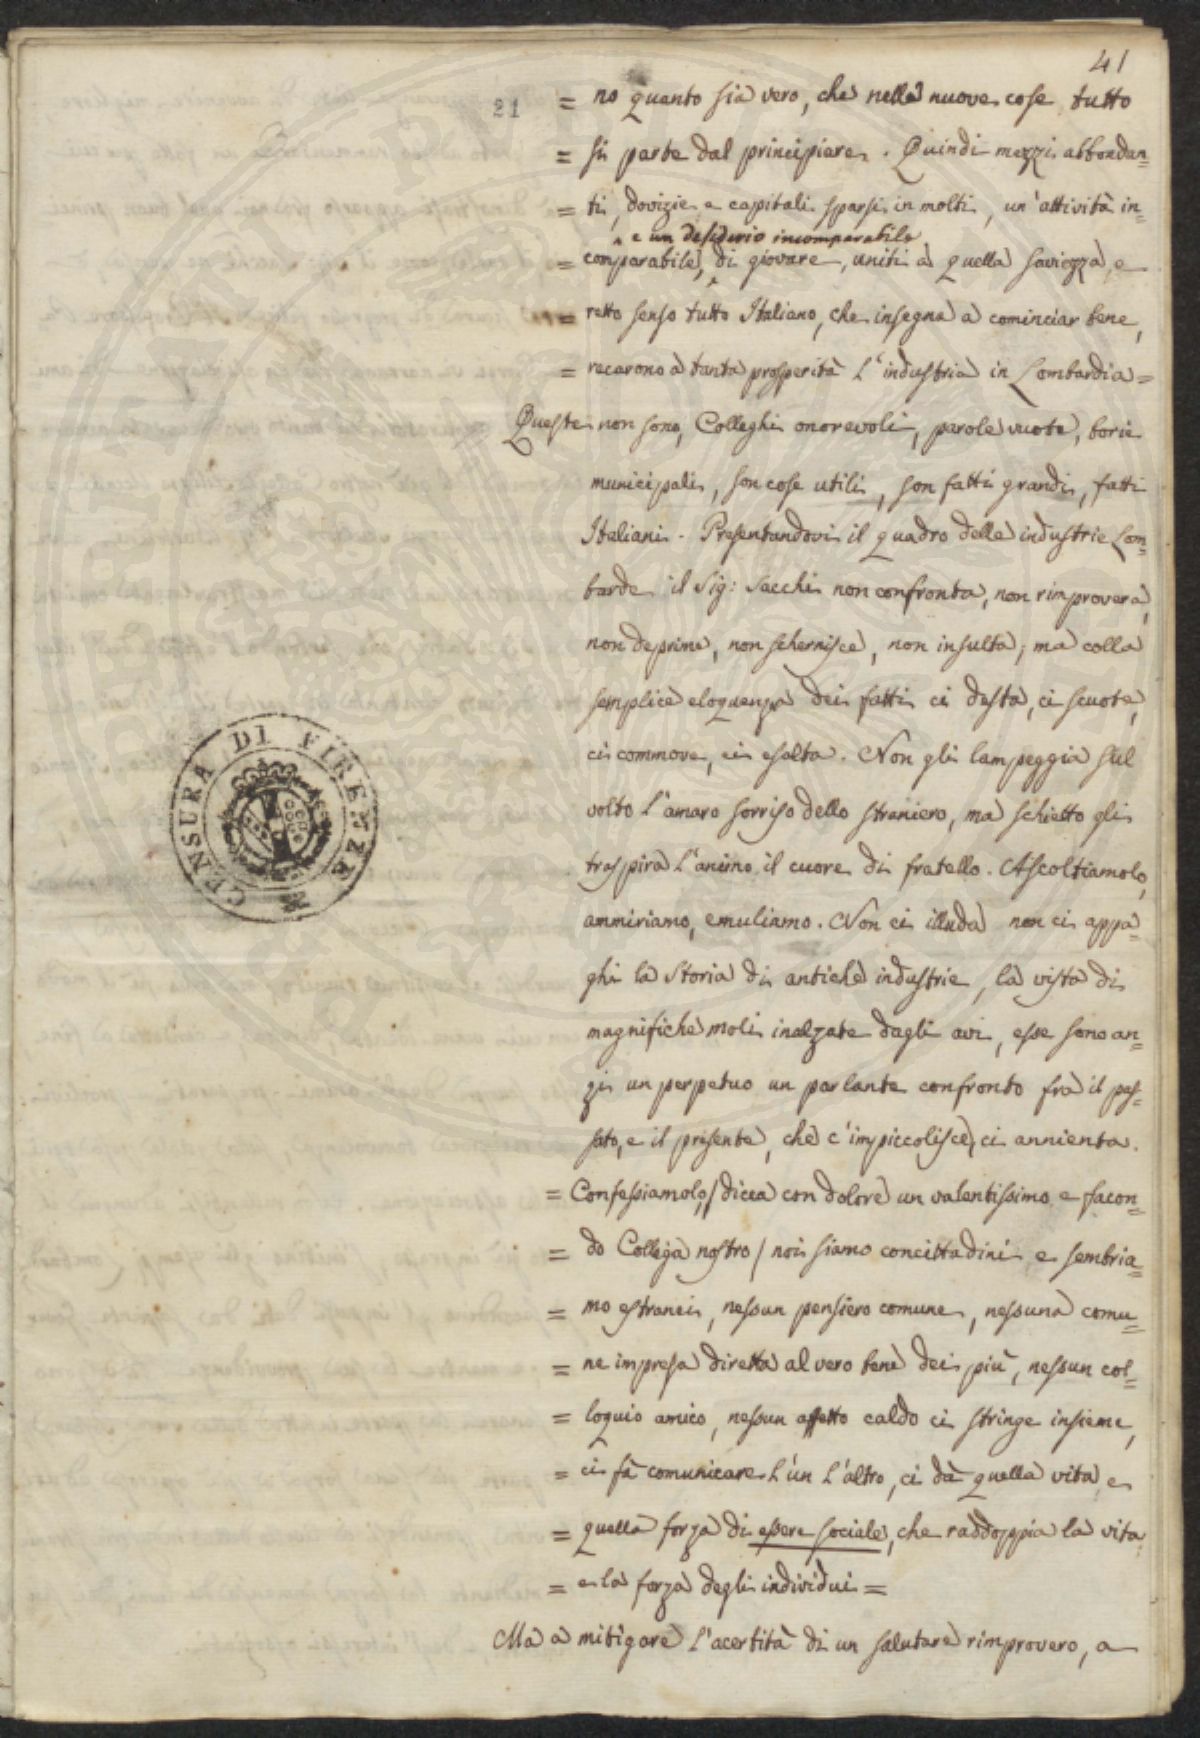 41
21
= no quanto sia vero, che nelle nuove cose tutto
= si parte dal principiare. Quindi mezzi abbondan=
= ti, dovizie e capitali sparsi in molti, un'attività in=
e un desiderio incomparabile
= comparabile, di giovare, uniti a quella saviezza, e
= retto senso tutto Italiano, che insegna a cominciar bene,
= recarono a tanta prosperità l'industria in Lombardia =
Queste non sono, Colleghi onorevoli, parole vuote, borie
municipali, son cose utili, son fatti grandi, fatti
Italiani. Presentandovi il quadro delle industrie Lom=
barde il Sig: Sacchi non confronta, non rimprovera,
non deprime, non schernisce, non insulta; ma colla
semplice eloquenza dei fatti ci desta, ci scuote,
ci commove, ci esalta. Non gli lampeggia sul
volto l'amaro sorriso dello straniero, ma schietto gli
traspira l'animo il cuore di fratello. Ascoltiamolo,
ammiriamo, emuliamo. Non ci illuda non ci appa=
ghi la Storia di antiche industrie, la vista di
magnifiche moli inalzate dagli avi, esse sono an=
zi un perpetuo un parlante confronto fra il pas=
sato, e il presente, che c'impiccolisce, ci annienta.
= Confessiamolo, / dicea con dolore un valentissimo e facon=
= do Collega nostro / noi siamo concittadini e sembria=
= mo estranei, nessun pensiero comune, nessuna comu=
= ne impresa diretta al vero bene dei più, nessun col=
= loquio amico, nessun affetto caldo ci stringe insieme,
= ci fà comunicare l'un l'altro, ci dà quella vita, e
= quella forza di essere sociale, che raddoppia la vita
= e la forza degli individui =
Ma a mitigare l'acerbità di un salutare rimprovero, a
CENSURA DI FIRENZE